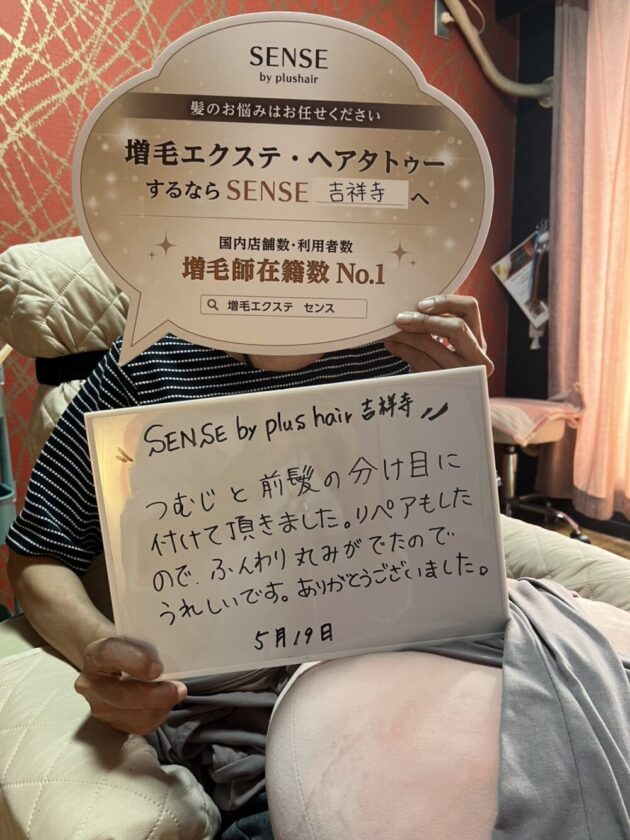 SENSE
by plushair
髪のお悩みはお任せください
増毛エクステ・ヘアタトゥー
するなら SENSE 吉祥寺 へ
国内店舗数・利用者数
増毛師在籍数 No.1
増毛エクステ センス
SENSE by plus hair 吉祥寺
つむじと前髪の分け目に
付けて頂きました。リペアもした
ので、ふんわり丸みがでたので
うれしいです。ありがとうございました。
5月19日